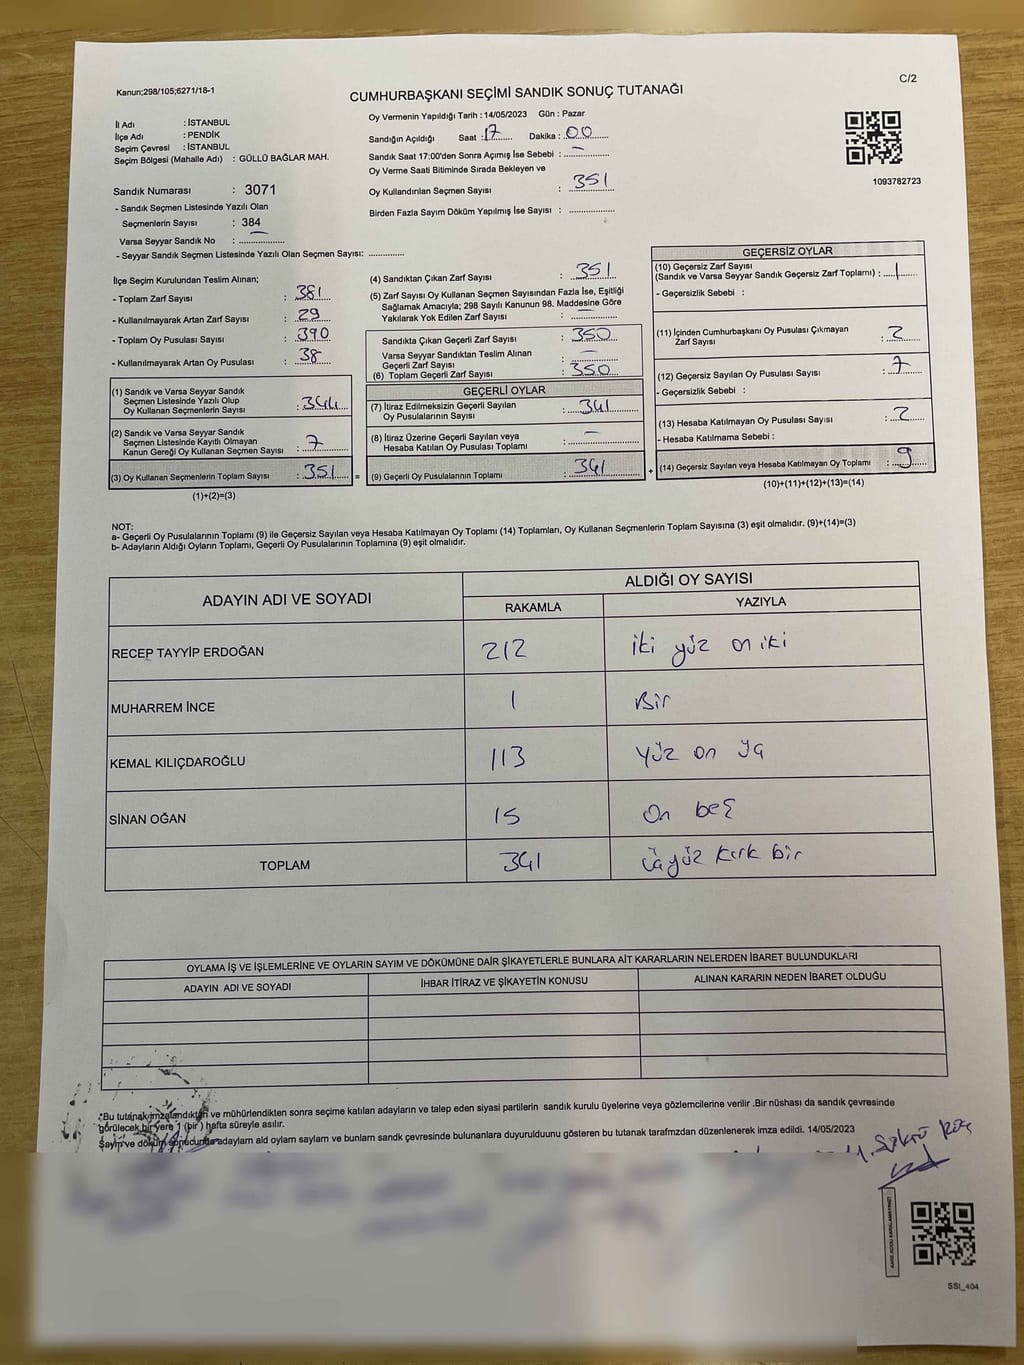 C/2
Kanun;298/105;6271/18-1
CUMHURBAŞKANI SEÇİMİ SANDIK SONUÇ TUTANAĞI
1093782723
İl Adı : İSTANBUL
İlçe Adı : PENDİK
Seçim Çevresi : İSTANBUL
Seçim Bölgesi (Mahalle Adı) : GÜLLÜ BAĞLAR MAH.
Sandık Numarası : 3071
- Sandık Seçmen Listesinde Yazılı Olan
Seçmenlerin Sayısı : 384
Varsa Seyyar Sandık No : —
- Seyyar Sandık Seçmen Listesinde Yazılı Olan Seçmen Sayısı: ................
Oy Vermenin Yapıldığı Tarih : 14/05/2023 Gün : Pazar
Sandığın Açıldığı Saat : 17 Dakika : 00
Sandık Saat 17:00'den Sonra Açımış İse Sebebi : —
Oy Verme Saati Bitiminde Sırada Bekleyen ve
Oy Kullandırılan Seçmen Sayısı : 351
Birden Fazla Sayım Döküm Yapılmış İse Sayısı : ................
İlçe Seçim Kurulundan Teslim Alınan;
- Toplam Zarf Sayısı : 381
- Kullanılmayarak Artan Zarf Sayısı : 29
- Toplam Oy Pusulası Sayısı : 390
- Kullanılmayarak Artan Oy Pusulası : 38
(1) Sandık ve Varsa Seyyar Sandık
Seçmen Listesinde Yazılı Olup
Oy Kullanan Seçmenlerin Sayısı : 344
(2) Sandık ve Varsa Seyyar Sandık
Seçmen Listesinde Kayıtlı Olmayan
Kanun Gereği Oy Kullanan Seçmen Sayısı : 7
(3) Oy Kullanan Seçmenlerin Toplam Sayısı : 351 =
(1)+(2)=(3)
(4) Sandıktan Çıkan Zarf Sayısı : 351
(5) Zarf Sayısı Oy Kullanan Seçmen Sayısından Fazla İse, Eşitliği
Sağlamak Amacıyla; 298 Sayılı Kanunun 98. Maddesine Göre
Yakılarak Yok Edilen Zarf Sayısı : —
Sandıkta Çıkan Geçerli Zarf Sayısı : 350
Varsa Seyyar Sandıktan Teslim Alınan
Geçerli Zarf Sayısı : —
(6) Toplam Geçerli Zarf Sayısı : 350
GEÇERLİ OYLAR
(7) İtiraz Edilmeksizin Geçerli Sayılan
Oy Pusulalarının Sayısı : 341
(8) İtiraz Üzerine Geçerli Sayılan veya
Hesaba Katılan Oy Pusulası Toplamı : —
(9) Geçerli Oy Pusulalarının Toplamı : 341 +
GEÇERSİZ OYLAR
(10) Geçersiz Zarf Sayısı
(Sandık ve Varsa Seyyar Sandık Geçersiz Zarf Toplamı) : 1
- Geçersizlik Sebebi :
(11) İçinden Cumhurbaşkanı Oy Pusulası Çıkmayan
Zarf Sayısı : 2
(12) Geçersiz Sayılan Oy Pusulası Sayısı : 7
- Geçersizlik Sebebi :
(13) Hesaba Katılmayan Oy Pusulası Sayısı : 2
- Hesaba Katılmama Sebebi :
(14) Geçersiz Sayılan veya Hesaba Katılmayan Oy Toplamı : 9
(10)+(11)+(12)+(13)=(14)
NOT:
a- Geçerli Oy Pusulalarının Toplamı (9) ile Geçersiz Sayılan veya Hesaba Katılmayan Oy Toplamı (14) Toplamları, Oy Kullanan Seçmenlerin Toplam Sayısına (3) eşit olmalıdır. (9)+(14)=(3)
b- Adayların Aldığı Oyların Toplamı, Geçerli Oy Pusulalarının Toplamına (9) eşit olmalıdır.
ADAYIN ADI VE SOYADI ALDIĞI OY SAYISI
RAKAMLA YAZIYLA
RECEP TAYYİP ERDOĞAN 212 iki yüz on iki
MUHARREM İNCE 1 Bir
KEMAL KILIÇDAROĞLU 113 yüz on üç
SİNAN OĞAN 15 On beş
TOPLAM 341 üçyüz kırk bir
OYLAMA İŞ VE İŞLEMLERİNE VE OYLARIN SAYIM VE DÖKÜMÜNE DAİR ŞİKAYETLERLE BUNLARA AİT KARARLARIN NELERDEN İBARET BULUNDUKLARI
ADAYIN ADI VE SOYADI İHBAR İTİRAZ VE ŞİKAYETİN KONUSU ALINAN KARARIN NEDEN İBARET OLDUĞU
*Bu tutanak imzalandıktan ve mühürlendikten sonra seçime katılan adayların ve talep eden siyasi partilerin sandık kurulu üyelerine veya gözlemcilerine verilir .Bir nüshası da sandık çevresinde
görülecek bir yere 1 (bir ) hafta süreyle asılır.
Sayım ve döküm sonucunda adayların aldı oyların sayların ve bunların sandk çevresinde bulunanlara duyurulduunu gösteren bu tutanak tarafmzdan düzenlenerek imza edildi. 14/05/2023
SSI_404